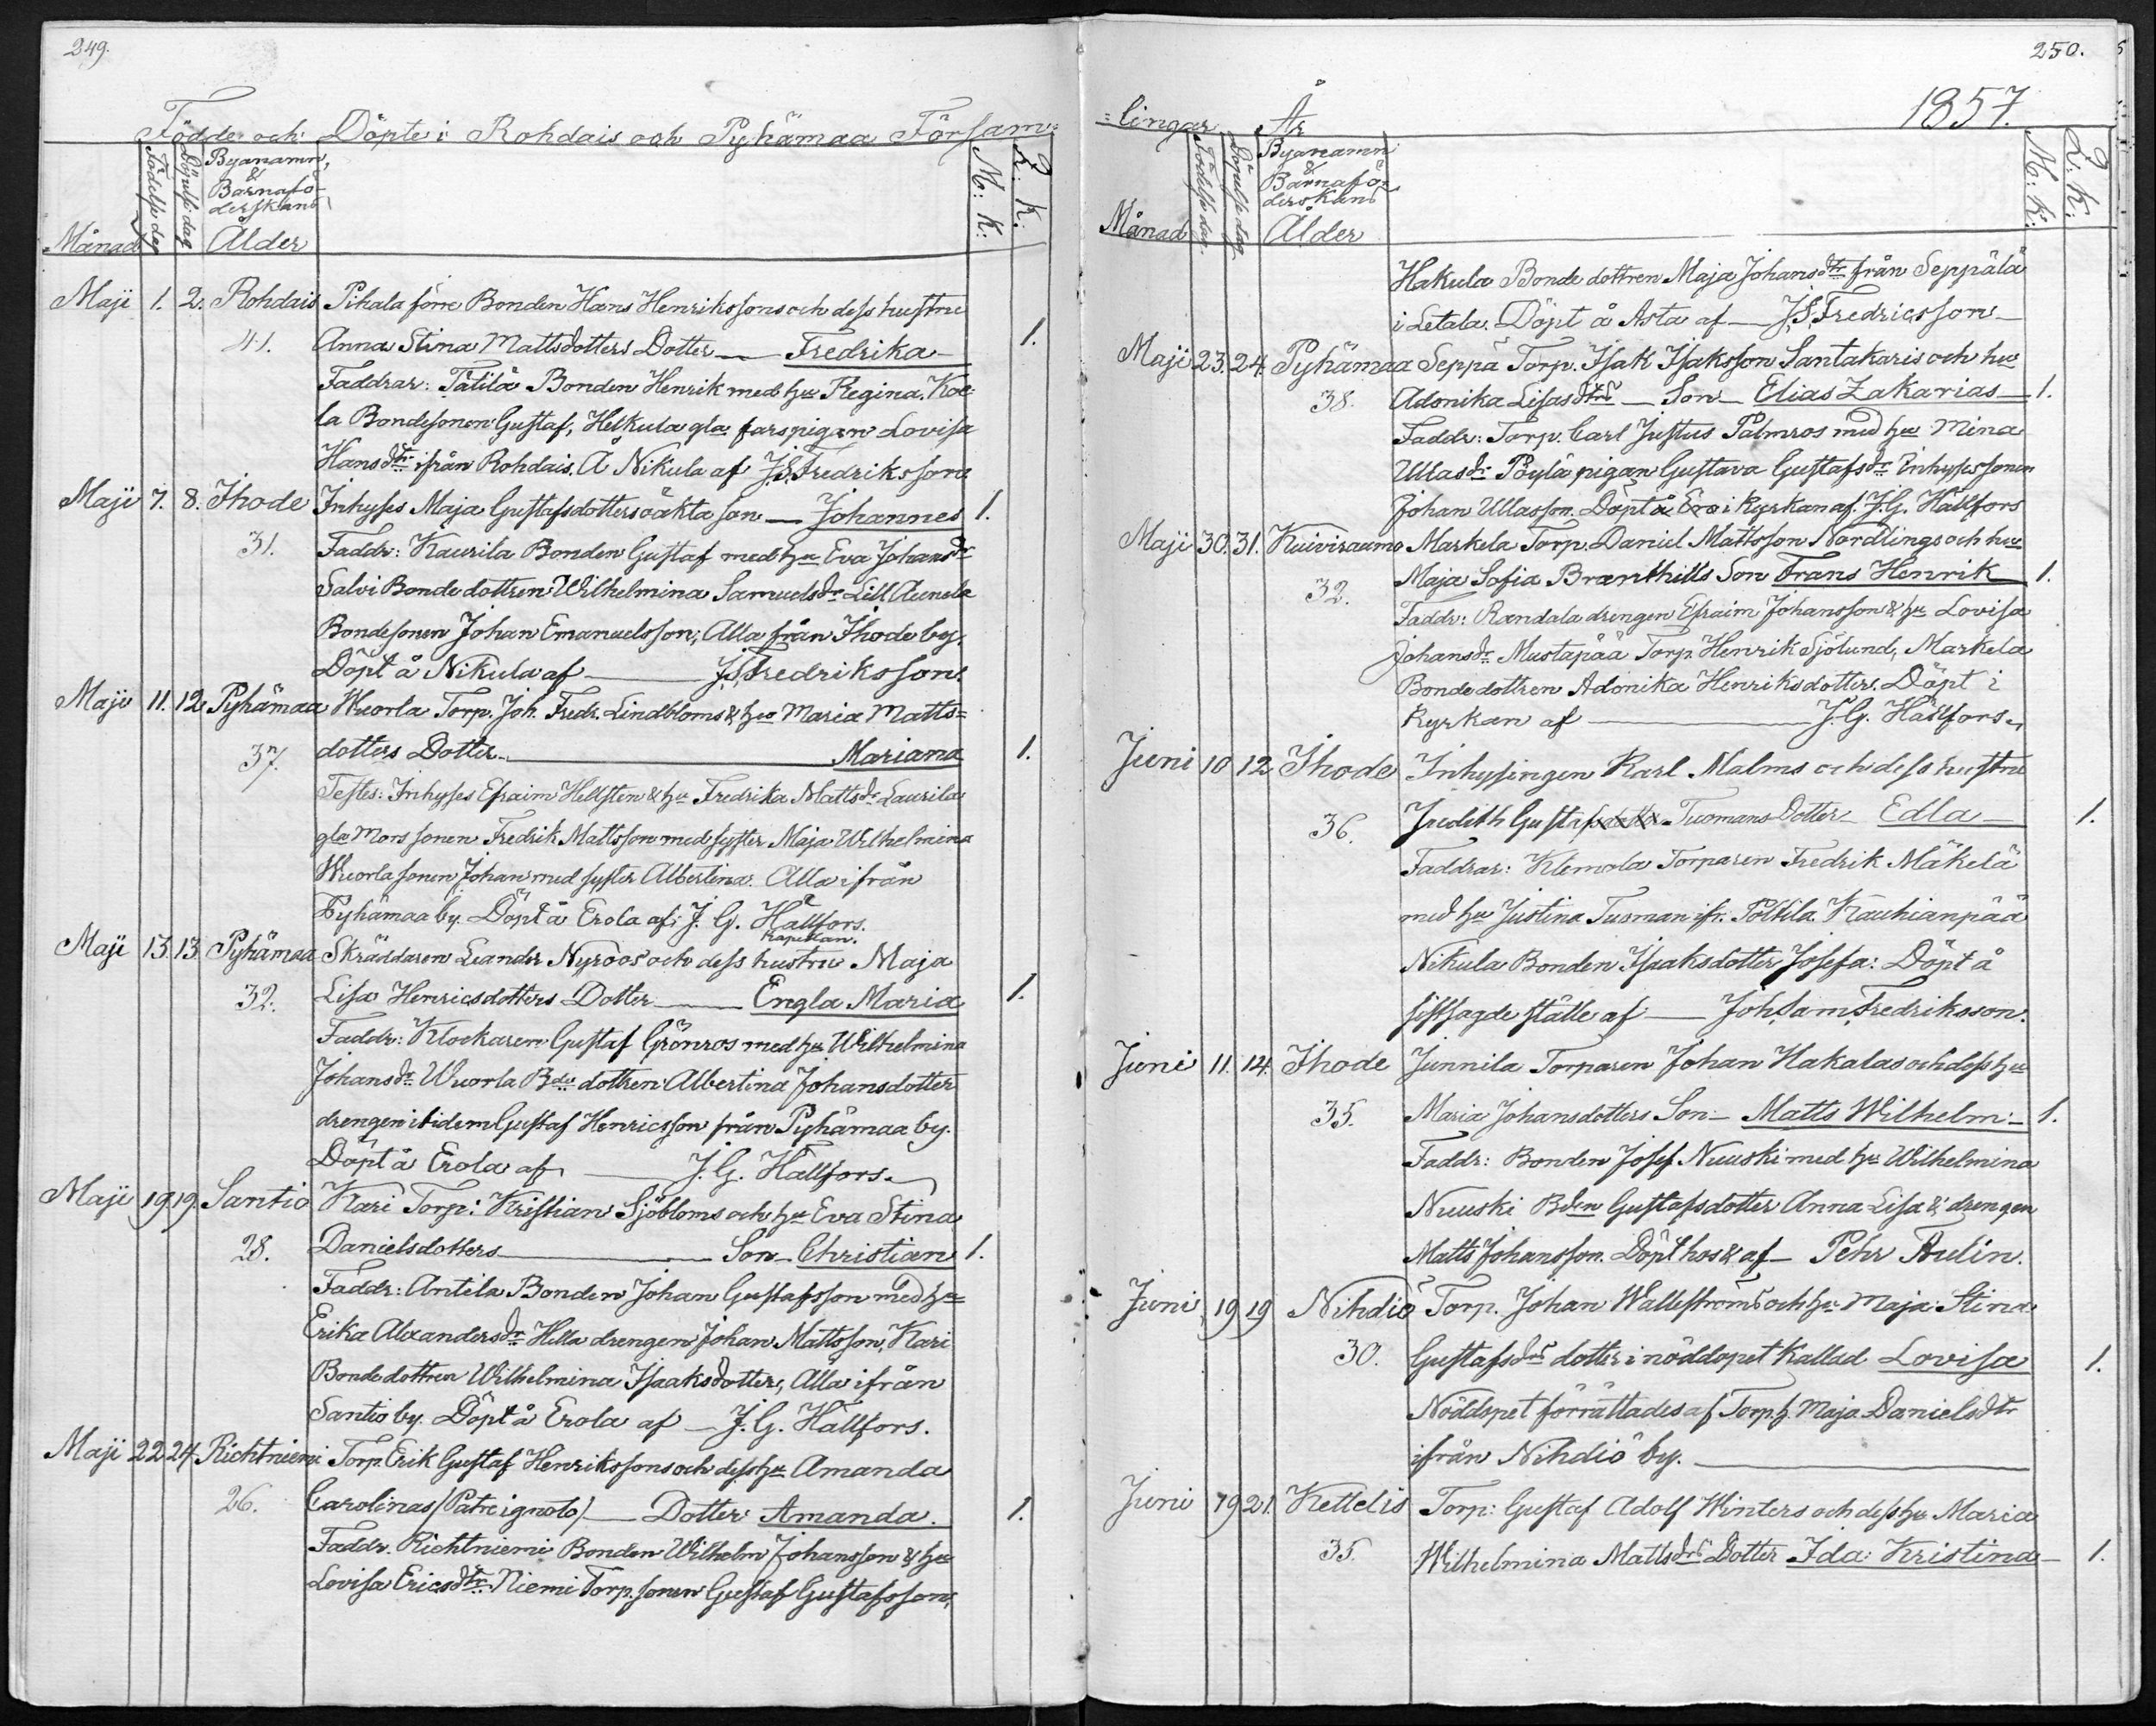 249.
Födde och Döpte i Rohdais och Pyhämaa Försam=
Månad Födelse dag Döpelse dag Byanamn, & Barnafö-derskans Ålder M: K: Q: K:
Maji 1. 2. Rohdais Pihala förre Bonden Hans Henrikssons och dess hustru
41. Anna Stina Mattsdotters Dotter — Fredrika — 1.
Faddrar: Tätilä Bonden Henrik med hu Regina. Koe-
la Bondesonen Gustaf, Helkula gla farspigan Lovisa
Hansdtr ifrån Rohdais. Å Nikula af J.S. Fredriksson
Maji 7. 8. Ihode Inhyses Maja Gustafsdotters oäkta son — Johannes 1.
31. Faddr: Kaurila Bonden Gustaf med hu Eva Johansdr
Salvi Bondedottren Wilhelmina Samuelsdr Lill Aunela
Bondesonen Johan Emanuelsson; Alla från Ihode by.
Döpt å Nikula af — J.S. Fredriksson.
Maji 11. 12. Pyhämaa Wuorla Torp. Joh. Fredr. Lindbloms & hu Maria Matts=
37. dotters Dotter — Mariana 1.
Testes: Inhyses Efraim Hellsten & hu Fredrika Mattsdr Laurila
gla Mors sonen Fredrik Mattsson med syster Maja Wilhelmina
Wuorla sonen Johan med syster Albertina. Alla ifrån
Pyhämaa by. Döpt å Erola af J. G. Hällfors.
Kapellan.
Maji 13. 13. Pyhämaa Skräddaren Leander Nyroos och dess hustru Maja
32. Lisa Henricsdotters Dotter — Engla Maria 1.
Faddr: Klockaren Gustaf Grönros med hu Wilhelmina
Johansdr Wuorla Bde dottren Albertina Johansdotter
drengen ibidem Gustaf Henricsson från Pyhämaa by.
Döpt å Erola af — J. G. Hällfors.
Maji 19. 19. Santio Kari Torp: Kristian Sjöbloms och hu Eva Stina
28. Danielsdotters — Son — Christian 1.
Faddr: Antila Bonden Johan Gustafsson med hu
Erika Alexandersdr Hella drengen Johan Mattsson, Kari
Bondedottren Wilhelmina Isaaksdotter, Alla ifrån
Santio by. Döpt å Erola af — J. G. Hällfors.
Maji 22 24. Richtniemi Torp. Erik Gustaf Henrikssons och dess hu Amanda
26. Carolinas (Patre ignoto) — Dotter Amanda. 1.
Faddr. Richtniemi Bonden Wilhelm Johansson & hu
Lovisa Ericsdtr. Niemi Torp. sonen Gustaf Gustafsson,
250.
=lingar År 1857.
Månad Födelse dag Döpelse dag Byanamn & Barnafö-derskans Ålder M: K: Q: K:
Hakula Bonde dottren Maja Johansdtr från Seppälä
i Letala. Döpt å Asta af — J.S. Fredricsson —
Maji 23. 24. Pyhämaa Seppä Torp. Isak Isaksson Santakaris och hu
38. Adonika Lisasdtrs — Son — Elias Zakarias — 1.
Faddr: Torp. Carl Justus Palmros med hu Mina
Ullasdr Pöylä pigan Gustava Gustafsdr Inhysessonen
Johan Ullasson. Döpt i kyrkan af. J. G. Hällfors
Maji 30. 31. Kuiviraamo Markela Torp. Daniel Mattsson Nordlings och hu
32. Maja Sofia Branthills Son Frans Henrik 1.
Faddr: Randala drengen Efraim Johansson & hu Lovisa
Johansdr Mustapää Torp. Henrik Sjölund, Markela
Bondedottren Adonika Henriksdotter. Döpt i
Kyrkan af — J. G. Hällfors.
Juni 10 12 Ihode Inhysingen Karl Malms och dess hustru
36. Judith Gustafsdotter Tuomans Dotter Edla — 1.
Faddrar: Klemola Torparen Fredrik Mäkelä
med hu Justina Tuoman ifr. Polttila. Kauhianpää
Nikula Bonden Isaaksdotter Josefa: Döpt å
sistsagde ställe af — Joh. Sam. Fredriksson.
Juni 11. 14. Ihode Junnila Torparen Johan Hakalas och dess hu
35. Maria Johansdotters Son — Matts Wilhelm — 1.
Faddr: Bonden Josef Nuuski med hu Wilhelmina
Nuuski Bden Gustafsdotter Anna Lisa & drengen
Matts Johansson. Döpt hos & af — Pehr Thulin.
Juni 19 19 Nihdiö Torp. Johan Wallströms och hu Maja Stina
30. Gustafsdrs dotter i nöddopet kallad Lovisa 1.
Nöddopet förrättades af Torp.h. Maja Danielsdtr
ifrån Nihdiö by. —
Juni 19 21. Kettelis Torp: Gustaf Adolf Winters och dess hu Maria
35. Wilhelmina Mattsdrs Dotter Ida Kristina — 1.